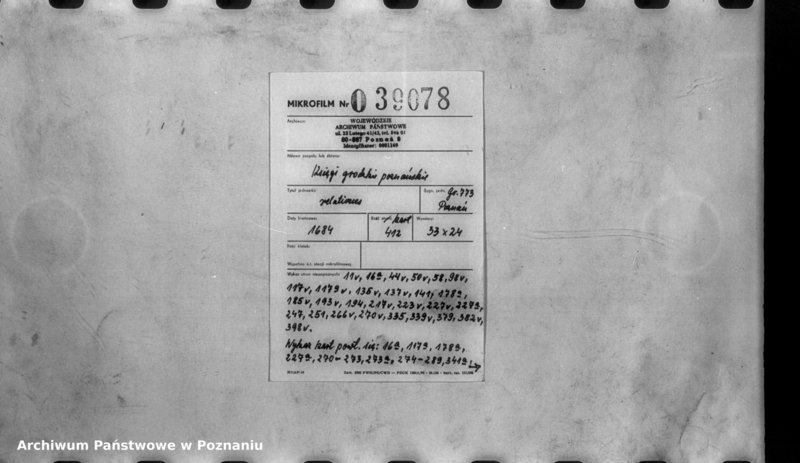 MIKROFILM Nr 0 39078
Archiwum:
WOJEWÓDZKIE
ARCHIWUM PAŃSTWOWE
ul. 23 Lutego 41/43, tel. 594 01
60-967 Poznań 9
Identyfikator: 0001249
Nazwa zespołu lub zbioru:
Księgi grodzkie poznańskie
Tytuł jednostki:
Sygn. jedn. Gr. 773
relationes
Poznań
Daty krańcowe:
Ilość kart
Wymiary:
1684
412
33 x 24
Ilość klatek:
Wypełnia k.t. stacji mikrofilmowej
Wykaz stron niezapisanych: 11v, 16a, 44v, 50v, 58, 98v,
117v, 117av, 135v, 137v, 141, 178a,
185v, 193v, 194, 217v, 223v, 227v, 227a,
247, 251, 266v, 270v, 335, 339v, 379, 382v,
398v.
Wykaz kart powt. się: 16a, 117a, 178a,
227a, 270-273, 273a, 274-289, 341a
Archiwum Państwowe w Poznaniu